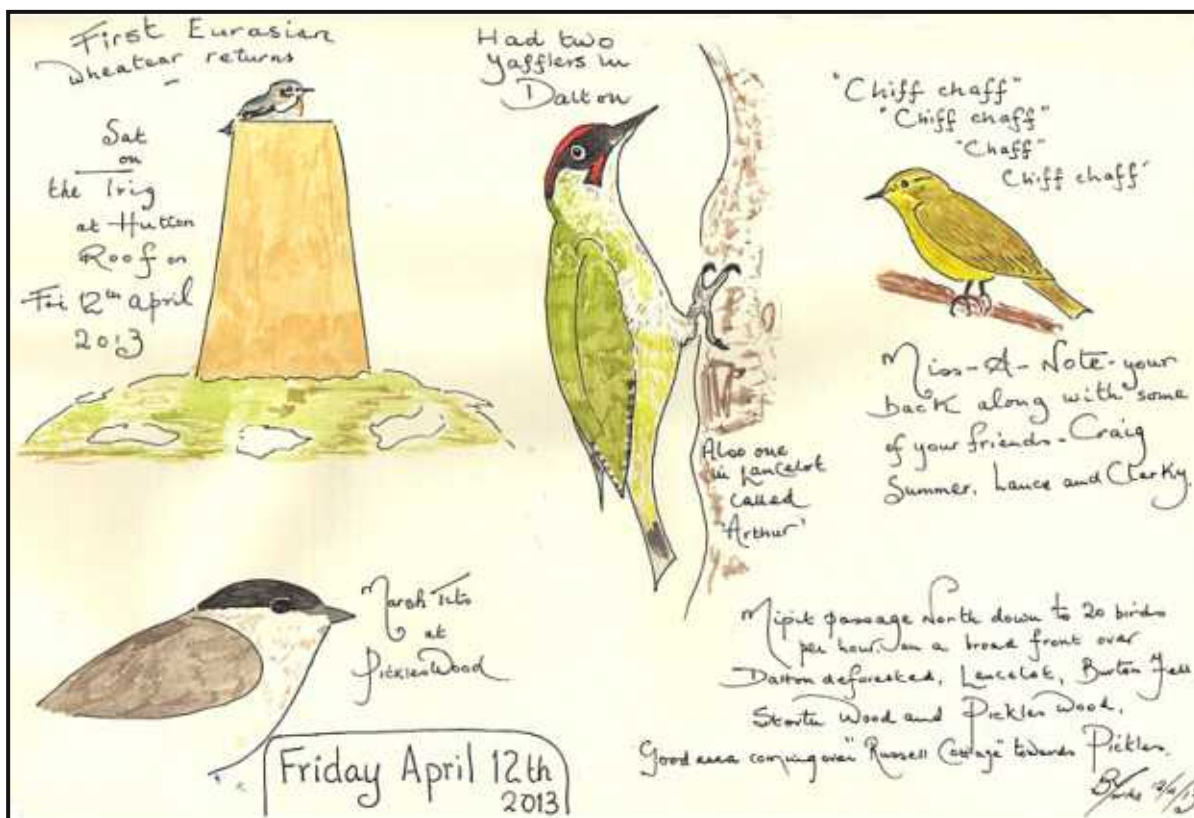 First Eurasian
Wheatear returns
Sat
on
the Trig
at Hutton
Roof on
Fri 12th April
2013
Had two
Yafflers in
Dalton
Also one
in Lancelot
called
'Arthur'
"Chiff chaff"
"Chiff chaff"
"Chaff"
Chiff chaff"
Miss-A-Note-your
back along with some
of your friends-Craig
Summer, Lance and Clarky.
Marsh Tits
at
Pickles Wood
Friday April 12th
2013
Mipit passage North down to 20 birds
per hour. on a broad front over
Dalton deforested, Lancelot, Burton Fell
Storth Wood and Pickles Wood.
Good area coming over "Russell Cottage" towards Pickles.